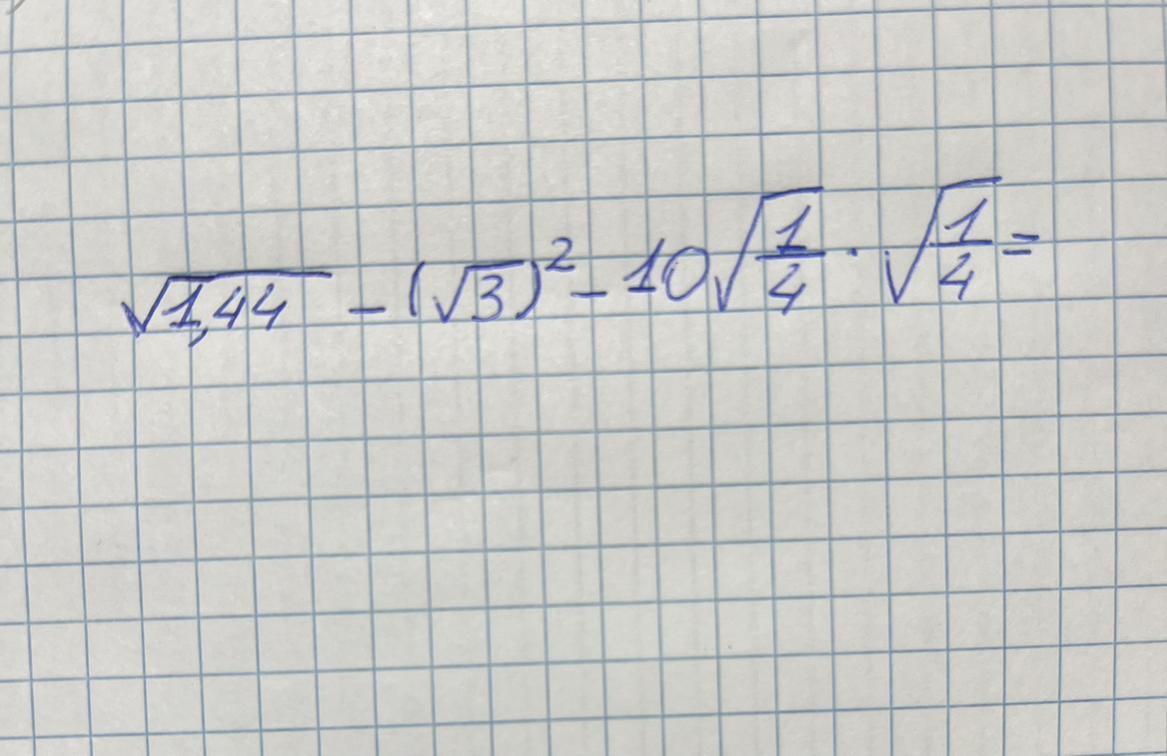 √1,44 - (√3)² - 10√(1/4) · √(1/4) =